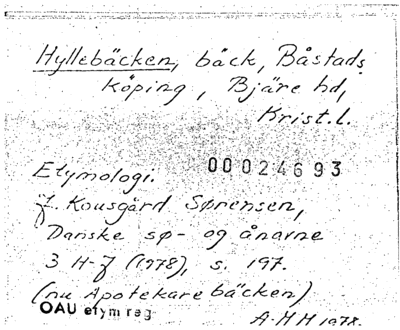 Hyllebäcken, bäck, Båstads
köping, Bjäre hd,
Krist.l.
00024693
Etymologi.
J. Kousgård Sørensen,
Danske sø- og ånavne
3 H-J (1978), s. 197.
(nu Apotekarebäcken)
OAU etym reg
A.M.H 1978.